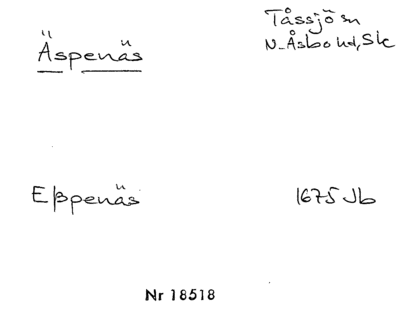 Äspenäs
Tåssjö sn
N. Åsbo hd, Sk
Eßpenäs
1675 Jb
Nr 18518